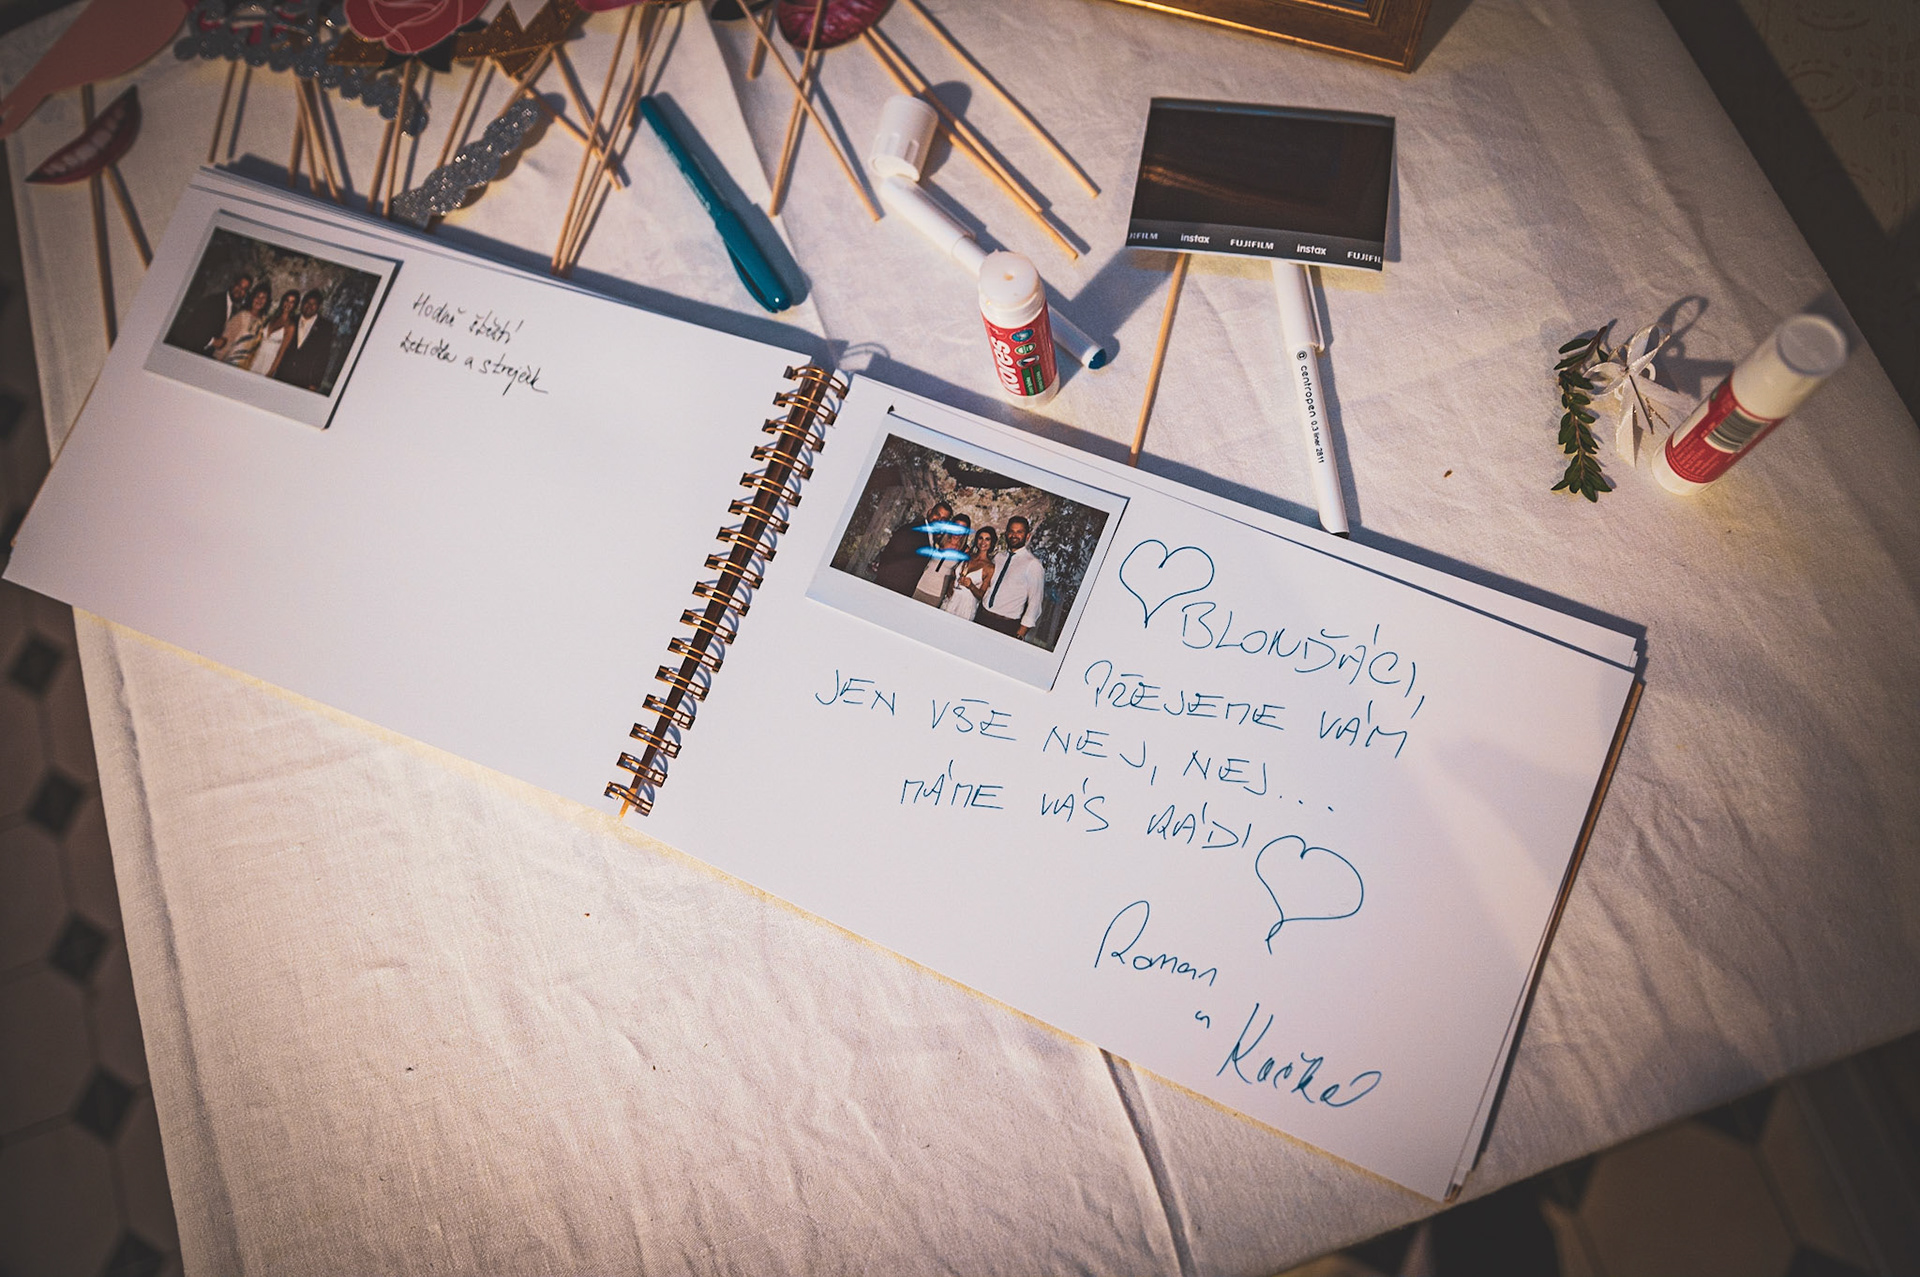 Hodně štěstí
tetička a strejček
BLONĎÁCI,
PŘEJEME VÁM
JEN VŠE NEJ, NEJ...
MÁME VÁS RÁDI
Roman
a Kačka
FUJIFILM instax FUJIFILM instax FUJIFIL
kores
centropen 0.3 liner 2811